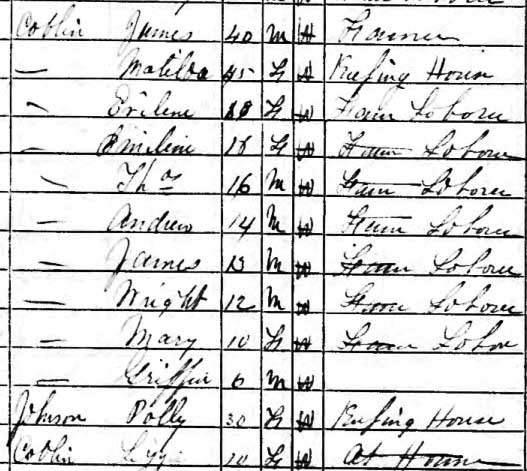 Coblin James 40 M W Farmer
— Matilda 45 F W Keefing House
— Eviline 18 F W Farm Laborer
— Emiline 18 F W Farm Laborer
— Thos 16 M W Farm Laborer
— Andrew 14 M W Farm Laborer
— James 13 M W Farm Laborer
— Wright 12 M W Farm Laborer
— Mary 10 F W Farm Labor
— Griffin 6 M W
Johnson Polly 30 F W Keefing House
Coblin 10 F W At Home